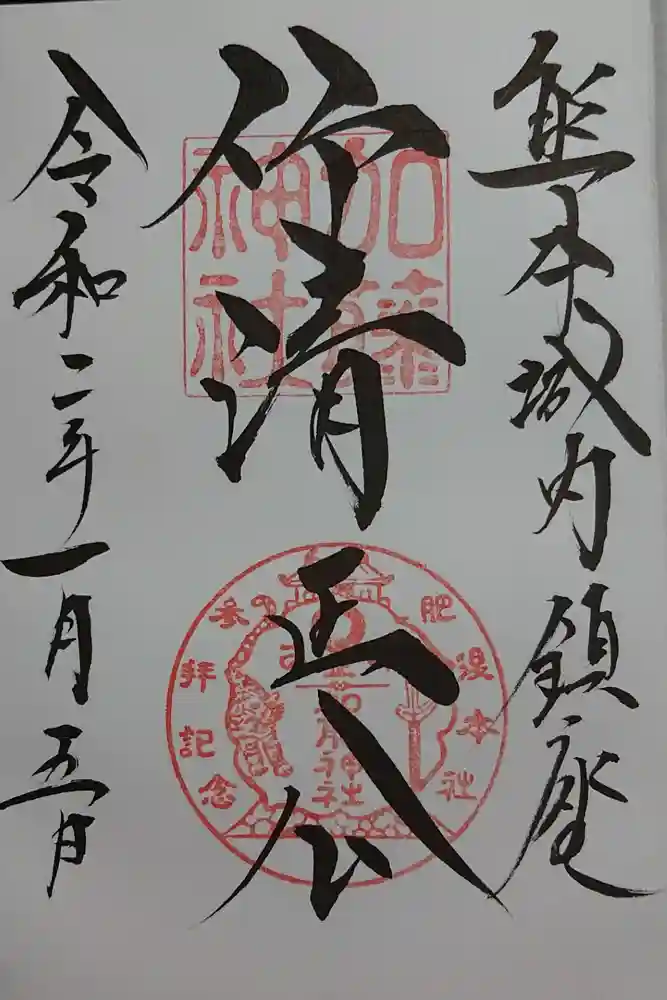 熊本城内鎮座
仰清正公
令和二年一月五日
加藤
神社
肥後本社
参拝記念